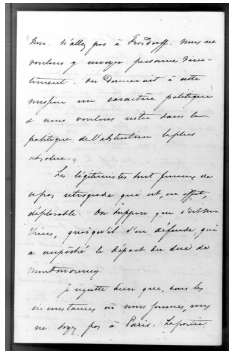 Non. N'allez pas à Frohsdorff. Nous ne
voulons y envoyer personne directement
tement. On donnerait à cette
mission un caractère politique
et nous voulons rester dans la
politique de l'abstention la plus
absolue.
Les légitimistes sont furieux de
repos rétrograde qui est, en effet,
déplorable. On suppose que c'est M.
Thiers, quoiqu'il s'en défende, qui
a empêché le départ du duc de
Montmorency
je regrette bien que, dans les
circonstances où nous sommes, vous
ne soyez pas à Paris.